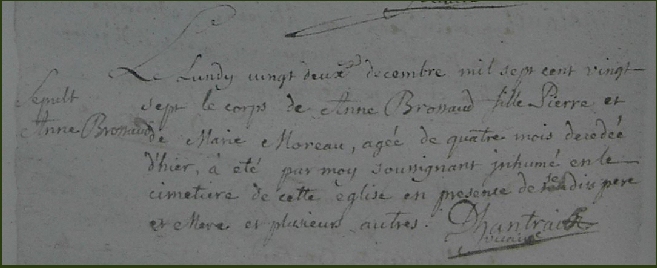 Le Lundy vingt deux decembre mil sept cent vingt
Sepult
sept le corps de Anne Brossaud fille Pierre et
Anne Brossaud
de Marie Moreau, agée de quatre mois decedée
d'hier, a eté par moy sousignant inhumé en le
cimetiere de cette eglise en presense de sesdits pere
et Mere et plusieurs autres. Dhantraix
vicaire